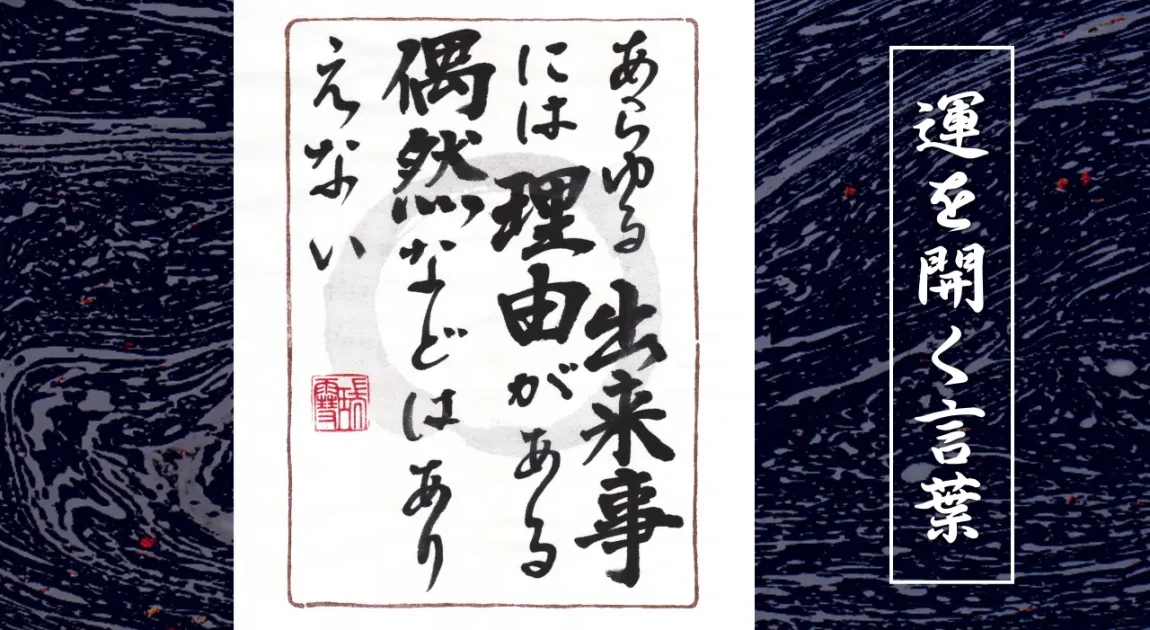 運を開く言葉
あらゆる出来事
には理由がある
偶然などはあり
えない